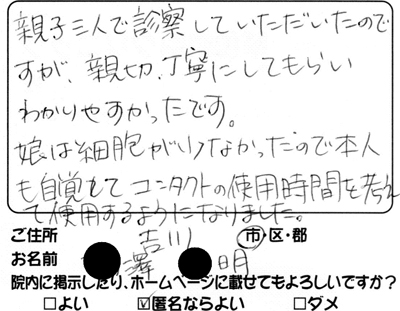 親子三人で診察していただいたので
すが、親切、丁寧にしてもらい
わかりやすかったです。
娘は細胞がいなかったので本人
も自覚もて コンタクトの使用時間を考え
て使用するようになりました。
ご住所 吉川 市・区・郡
お名前 澤 明
院内に掲示したり、ホームページに載せてもよろしいですか？
□よい ☑匿名ならよい □ダメ